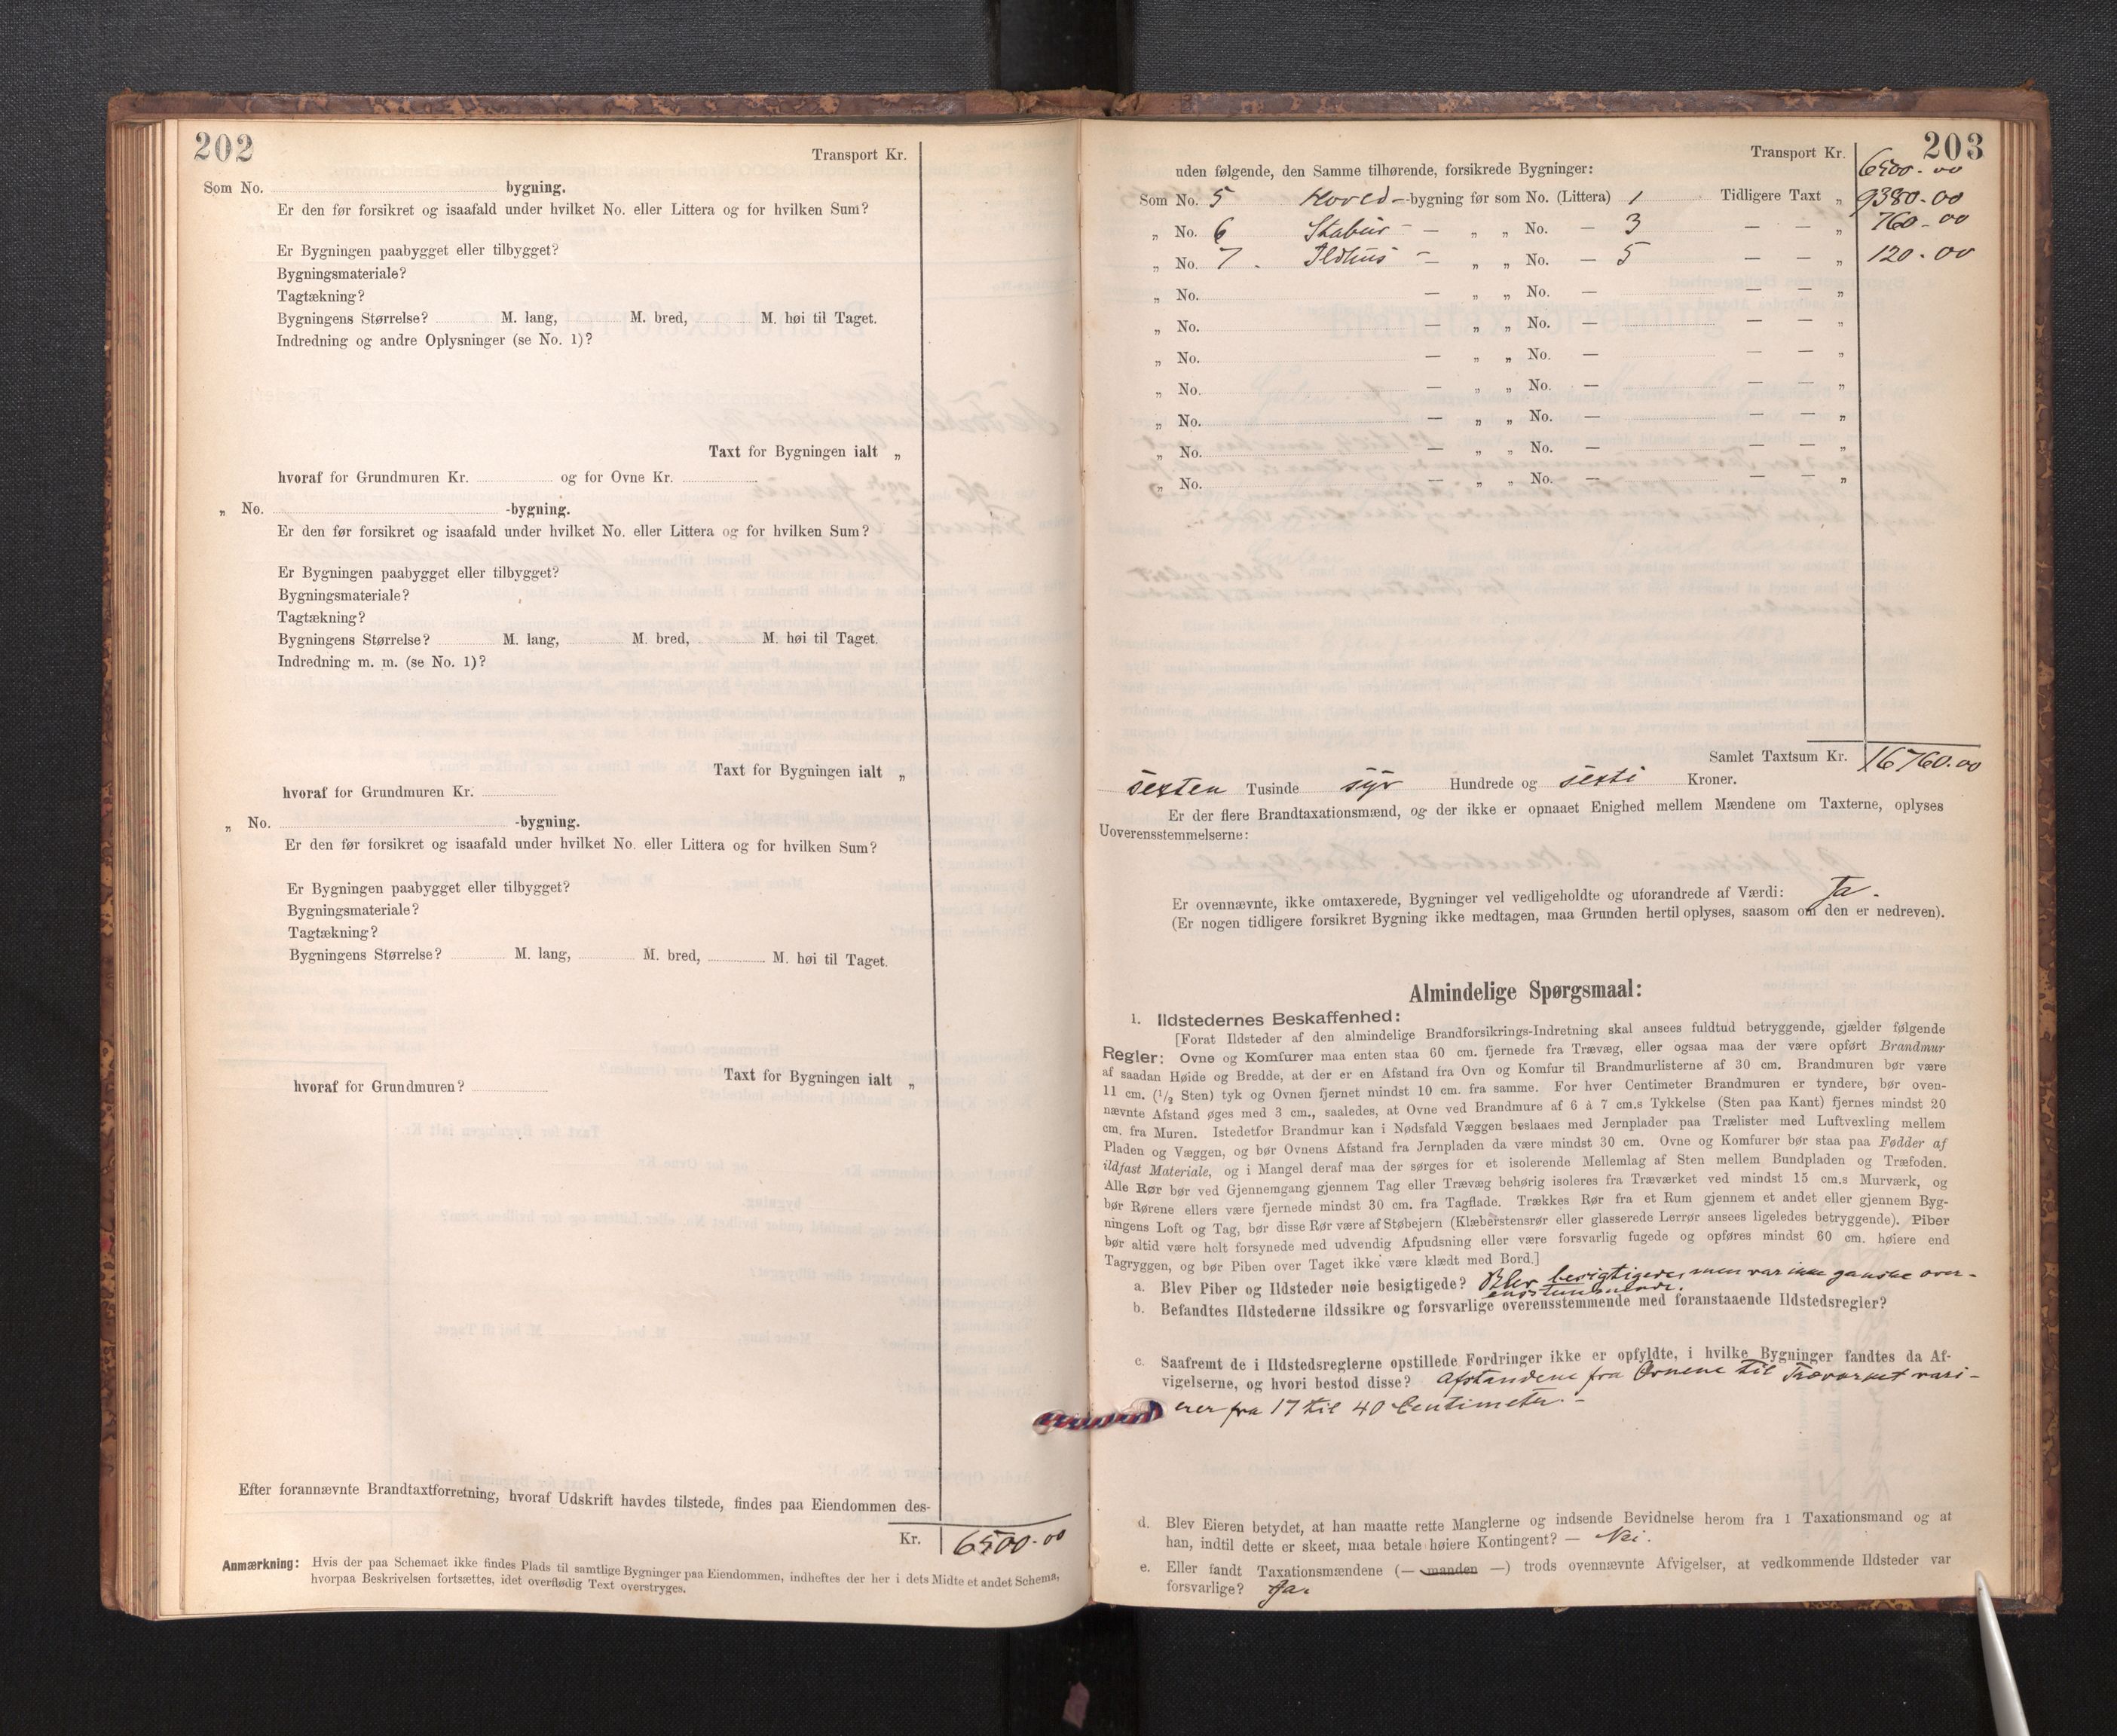 202
Transport Kr.
Som No. bygning.
Er den før forsikret og isaafald under hvilket No. eller Littera og for hvilken Sum?
Er Bygningen paabygget eller tilbygget?
Bygningsmateriale?
Tagtækning?
Bygningens Størrelse? M. lang, M. bred, M. høi til Taget.
Indredning og andre Oplysninger (se No. 1)?
Taxt for Bygningen ialt „
hvoraf for Grundmuren Kr. og for Ovne Kr.
„ No. -bygning.
Er den før forsikret og isaafald under hvilket No. eller Littera og for hvilken Sum?
Er Bygningen paabygget eller tilbygget?
Bygningsmateriale?
Tagtækning?
Bygningens Størrelse? M. lang, M. bred, M. høi til Taget.
Indredning m. m. (se No. 1)?
Taxt for Bygningen ialt „
hvoraf for Grundmuren Kr.
„ No. -bygning.
Er den før forsikret og isaafald under hvilket No. eller Littera og for hvilken Sum?
Er Bygningen paabygget eller tilbygget?
Bygningsmateriale?
Tagtækning?
Bygningens Størrelse? M. lang, M. bred, M. høi til Taget.
Taxt for Bygningen ialt „
hvoraf for Grundmuren?
Efter forannævnte Brandtaxtforretning, hvoraf Udskrift havdes tilstede, findes paa Eiendommen des-
Kr. 6500.00
Anmærkning: Hvis der paa Schemaet ikke findes Plads til samtlige Bygninger paa Eiendommen, indheftes der her i dets Midte et andet Schema,
hvorpaa Beskrivelsen fortsættes, idet overflødig Text overstryges.
203
Transport Kr. 6500.00
uden følgende, den Samme tilhørende, forsikrede Bygninger:
Som No. 5 Hoved- -bygning før som No. (Littera) 1 Tidligere Taxt „ 9380.00
„ No. 6 Stabur - — „ „ No. — 3 — — „ 760.00
„ No. 7. Ildhus - — „ „ No. — 5 — — „ 120.00
„ No. — „ „ No. — — — „
„ No. — „ „ No. — — — „
„ No. — „ „ No. — — — „
„ No. — „ „ No. — — — „
„ No. — „ „ No. — — — „
„ No. — „ „ No. — — — „
„ No. — „ „ No. — — — „
Samlet Taxtsum Kr. 16760.00
sexten Tusinde syv Hundrede og sexti Kroner.
Er der flere Brandtaxationsmænd, og der ikke er opnaaet Enighed mellem Mændene om Taxterne, oplyses
Uoverensstemmelserne:
Er ovennævnte, ikke omtaxerede, Bygninger vel vedligeholdte og uforandrede af Værdi: Ja.
(Er nogen tidligere forsikret Bygning ikke medtagen, maa Grunden hertil oplyses, saasom om den er nedreven).
Almindelige Spørgsmaal:
1. Ildstedernes Beskaffenhed:
[Forat Ildsteder af den almindelige Brandforsikrings-Indretning skal ansees fuldtud betryggende, gjælder følgende
Regler: Ovne og Komfurer maa enten staa 60 cm. fjernede fra Trævæg, eller ogsaa maa der være opført Brandmur
af saadan Høide og Bredde, at der er en Afstand fra Ovn og Komfur til Brandmurlisterne af 30 cm. Brandmuren bør være
11 cm. (1/2 Sten) tyk og Ovnen fjernet mindst 10 cm. fra samme. For hver Centimeter Brandmuren er tyndere, bør oven-
nævnte Afstand øges med 3 cm., saaledes, at Ovne ved Brandmure af 6 à 7 cm.s Tykkelse (Sten paa Kant) fjernes mindst 20
cm. fra Muren. Istedetfor Brandmur kan i Nødsfald Væggen beslaaes med Jernplader paa Trælister med Luftvexling mellem
Pladen og Væggen, og bør Ovnens Afstand fra Jernpladen da være mindst 30 cm. Ovne og Komfurer bør staa paa Fødder af
ildfast Materiale, og i Mangel deraf maa der sørges for et isolerende Mellemlag af Sten mellem Bundpladen og Træfoden.
Alle Rør bør ved Gjennemgang gjennem Tag eller Trævæg behørig isoleres fra Træværket ved mindst 15 cm.s Murværk, og
bør Rørene ellers være fjernede mindst 30 cm. fra Tagflade. Trækkes Rør fra et Rum gjennem et andet eller gjennem Byg-
ningens Loft og Tag, bør disse Rør være af Støbejern (Klæberstensrør eller glasserede Lerrør ansees ligeledes betryggende). Piber
bør altid være helt forsynede med udvendig Afpudsning eller være forsvarlig fugede og opføres mindst 60 cm. høiere end
Tagryggen, og bør Piben over Taget ikke være klædt med Bord.]
a. Blev Piber og Ildsteder nøie besigtigede? Blev besigtigede, men var ikke ganske over-
ensstemmende.
b. Befandtes Ildstederne ildssikre og forsvarlige overensstemmende med foranstaaende Ildstedsregler?
c. Saafremt de i Ildstedsreglerne opstillede Fordringer ikke er opfyldte, i hvilke Bygninger fandtes da Af-
vigelserne, og hvori bestod disse? Afstandene fra Ovnene til Træværket vari-
erer fra 17 til 40 Centimeter. -
d. Blev Eieren betydet, at han maatte rette Manglerne og indsende Bevidnelse herom fra 1 Taxationsmand og at
han, indtil dette er skeet, maa betale høiere Kontingent? — Nei.
e. Eller fandt Taxationsmændene (— manden —) trods ovennævnte Afvigelser, at vedkommende Ildsteder var
forsvarlige? Ja.